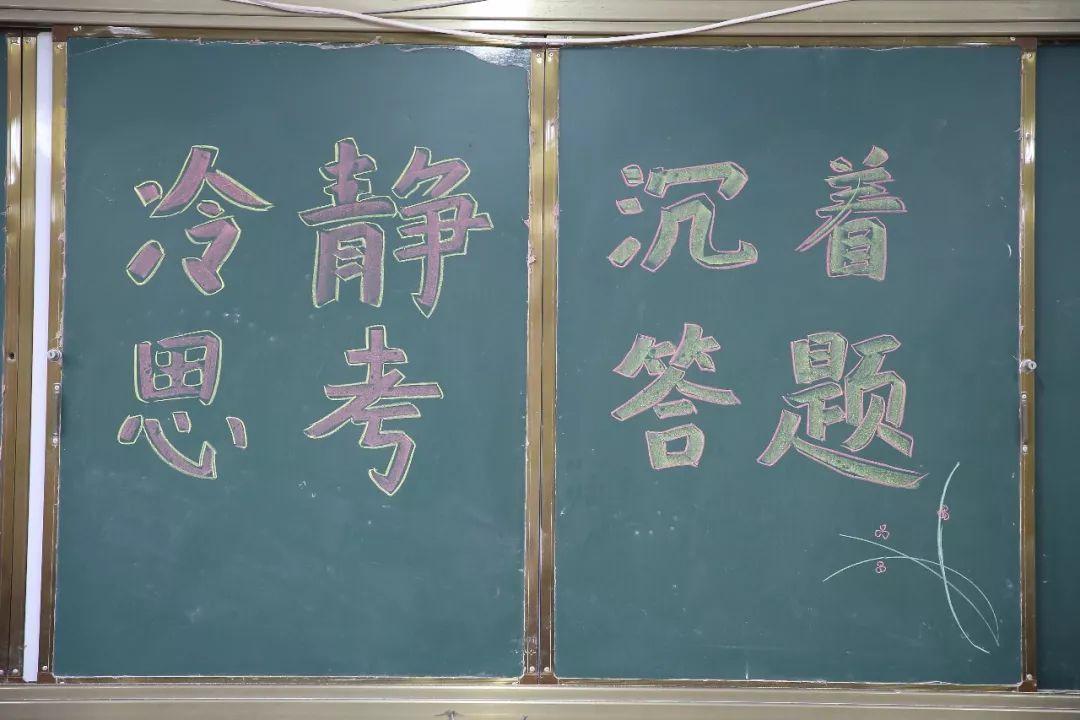 冷静
思考
沉着
答题